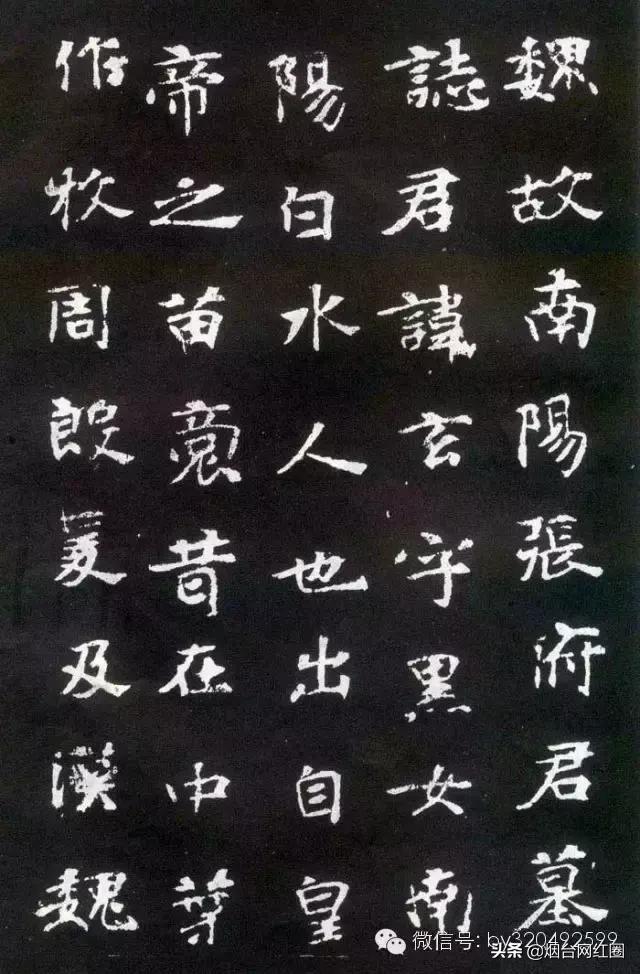 魏故南陽張府君墓
誌君諱玄字黑女南
陽白水人也出自皇
帝之苗裔昔在中葉
作牧周殷爰及漢魏
微信号: by320492599
头条 @烟台网红圈